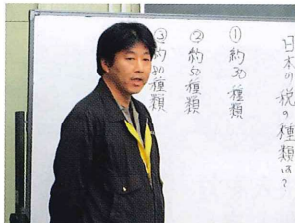 日本の税の種類は?
①約30種類
②約50種類
③約80種類